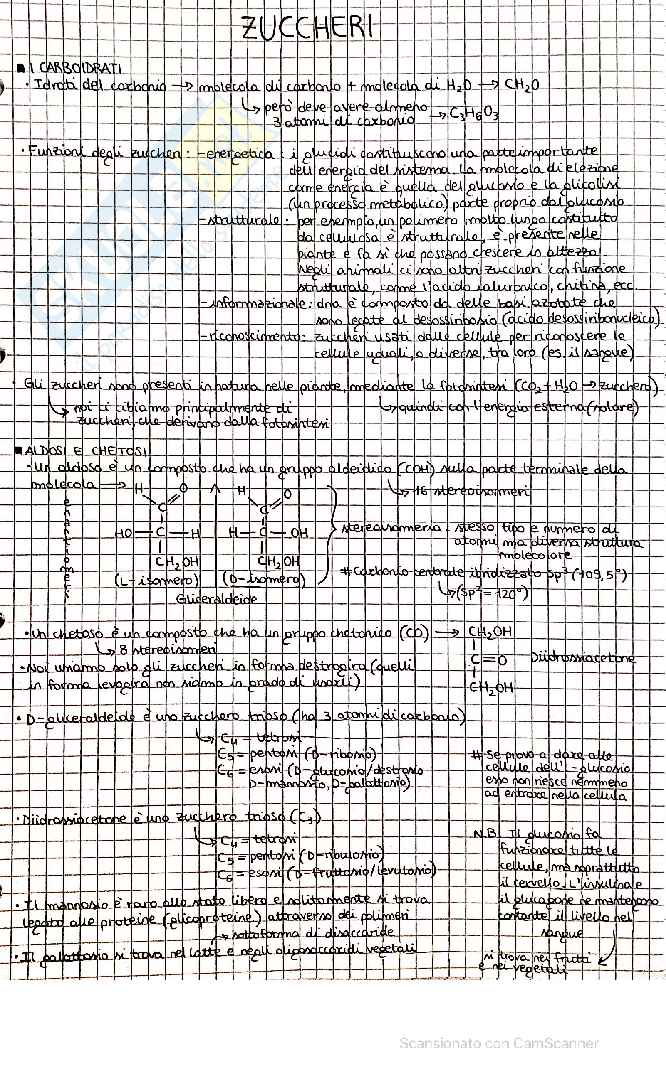 ZUCCHERI
■ I CARBOIDRATI
· Idrati del carbonio → molecola di carbonio + molecola di H2O → CH2O
↳ però deve avere almeno
3 atomi di carbonio → C3H6O3
· Funzioni degli zuccheri: - energetica: i glucidi costituiscono una parte importante
dell'energia del sistema. La molecola di elezione
come energia è quella del glucosio e la glicolisi
(un processo metabolico) parte proprio dal glucosio
- strutturale: per esempio, un polimero molto lungo costituito
da cellulosa è strutturale, è presente nelle
piante e fa sì che possano crescere in altezza.
Negli animali ci sono altri zuccheri con funzione
strutturale, come l'acido ialuronico, chitina, ecc.
- informazionale: dna è composto da delle basi azotate che
sono legate al desossiribosio (acido desossiribonucleico)
- riconoscimento: zuccheri usati dalle cellule per riconoscere le
cellule uguali, o diverse, tra loro (es. il sangue)
· Gli zuccheri sono presenti in natura nelle piante, mediante la fotosintesi (CO2 + H2O → zucchero)
↳ noi ci cibiamo principalmente di ↳ quindi con l'energia esterna (solare)
zuccheri, che derivano dalla fotosintesi
■ ALDOSI E CHETOSI
· Un aldoso è un composto che ha un gruppo aldeidico (COH) sulla parte terminale della
molecola → ↳ 16 stereoisomeri
H O H O
C C
HO-C-H H-C-OH
CH2OH CH2OH
(L-isomero) (D-isomero)
Gliceraldeide
enantiomeri
stereoisomeria: stesso tipo e numero di
atomi ma diversa struttura
molecolare
# Carbonio centrale ibridizzato sp3 (109,5°)
↳ (sp2 = 120°)
· Un chetoso è un composto che ha un gruppo chetonico (CO) → CH2OH
↳ 8 stereoisomeri
C=O Diidrossiacetone
CH2OH
· Noi usiamo solo gli zuccheri in forma destrogira (quelli
in forma levogira non siamo in grado di usarli)
· D-gliceraldeide è uno zucchero trioso (ha 3 atomi di carbonio)
↳ C4 = tetrosi
C5 = pentosi (D-ribosio)
C6 = esosi (D-glucosio/destrosio
D-mannosio, D-galattosio)
# Se provo a dare alle
cellule dell'L-glucosio
esso non riesce nemmeno
ad entrare nella cellula
· Diidrossiacetone è uno zucchero trioso (C3)
↳ C4 = tetrosi
C5 = pentosi (D-ribulosio)
C6 = esosi (D-fruttosio/levulosio)
N.B. Il glucosio fa
funzionare tutte le
cellule, ma soprattutto
il cervello. L'insulina e
il glucagone ne mantengono
costante il livello nel
sangue
· Il mannosio è raro allo stato libero e solitamente si trova
legato alle proteine (glicoproteine) attraverso dei polimeri
→ sottoforma di disaccaride
· Il galattosio si trova nel latte e negli oligosaccaridi vegetali
si trova nei frutti
e nei vegetali
Scansionato con CamScanner